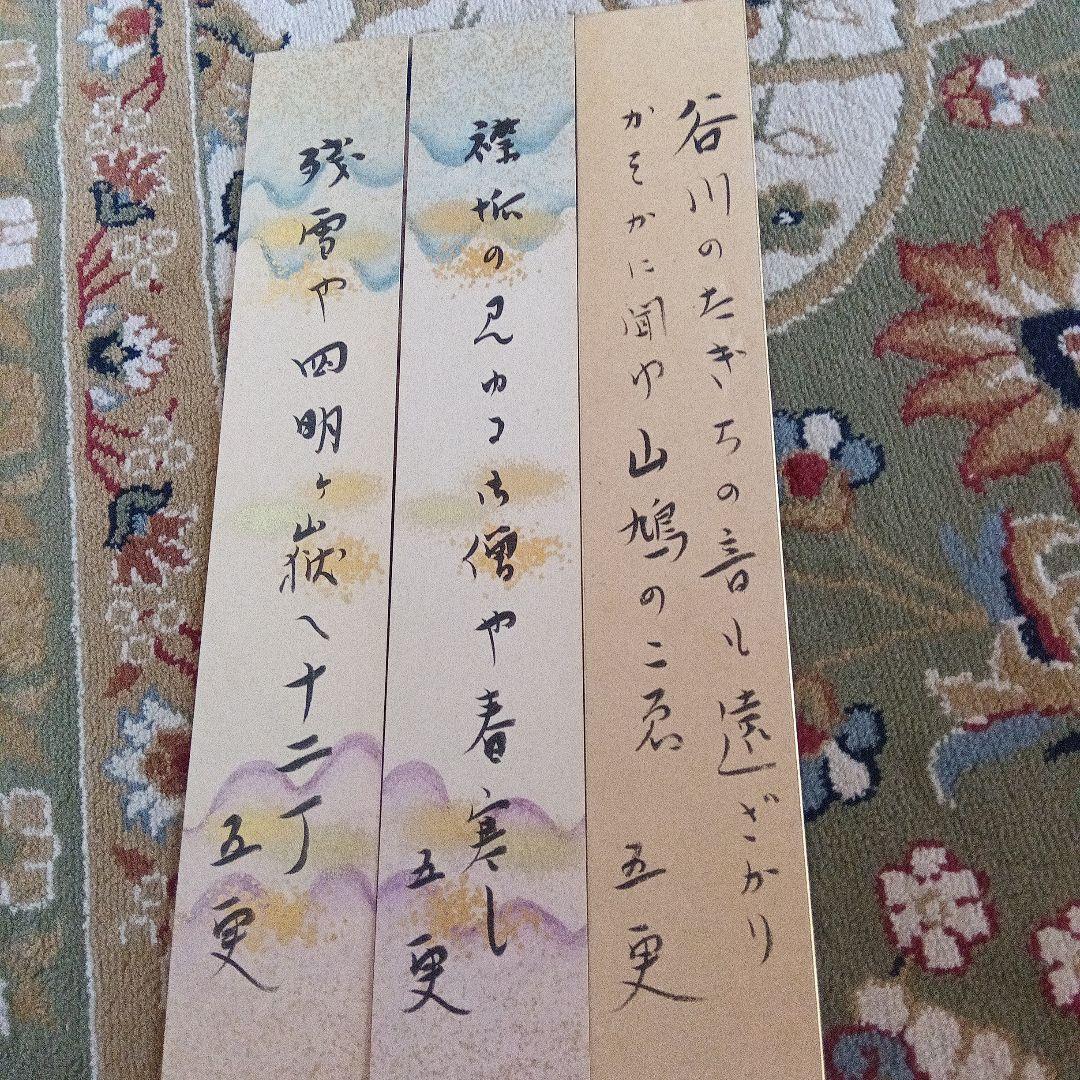 谷川のたぎちの音も遠ざかり
かそかに聞ゆ山鳩のこゑ
五更
襟垢の見ゆるは僧や春寒し
五更
残雪や四明ヶ嶽へ十二丁
五更